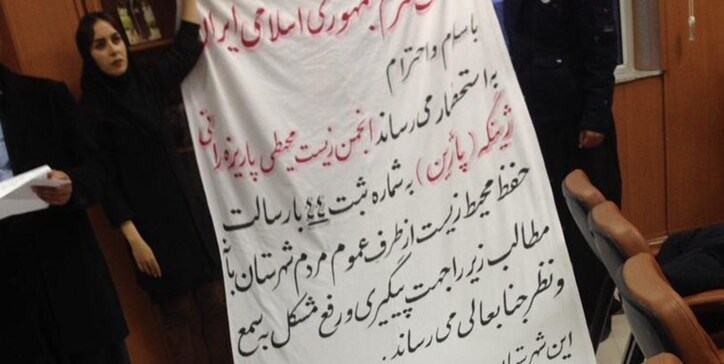 جمهوری اسلامی ایران
با سلام و احترام
به استحضار می رساند انجمن زیست محیطی پاریزه رانی
ژینگه (پاژین) به شماره ثبت ٤٤ با رسالت
حفظ محیط زیست از طرف عموم مردم شهرستان بانه
مطالب زیر را جهت پیگیری و رفع مشکل به سمع
و نظر جنابعالی می رساند.
این